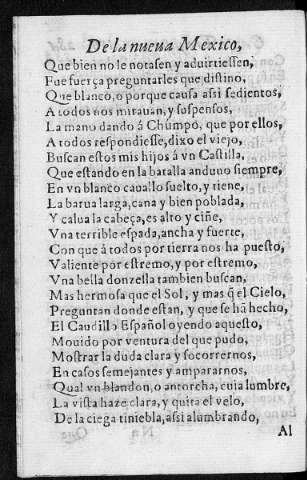 De la nueua Mexico,
Que bien no le notasen y aduirtiessen,
Fue fuerça preguntarles que distino,
Que blanco, o porque causa assi sedientos,
A todos nos mirauan, y suspensos,
La mano dando á Chumpo, que por ellos,
A todos respondiesse, dixo el viejo,
Buscan estos mis hijos á vn Castilla,
Que estando en la batalla anduuo siempre,
En vn blanco cauallo suelto, y tiene,
La barua larga, cana y bien poblada,
Y calua la cabeça, es alto y ciñe,
Vna terrible espada, ancha y fuerte,
Con que á todos por tierra nos ha puesto,
Valiente por estremo, y por estremo,
Vna bella donzella tambien buscan,
Mas hermosa que el Sol, y mas q̃ el Cielo,
Preguntan donde estan, y que se hã hecho,
El Caudillo Español oyendo aquesto,
Mouido por ventura del que pudo,
Mostrar la duda clara y socorrernos,
En casos semejantes y ampararnos,
Qual vn blandon, o antorcha, cuia lumbre,
La vista haze clara, y quita el velo,
De la ciega tiniebla, assi alumbrando,
Al